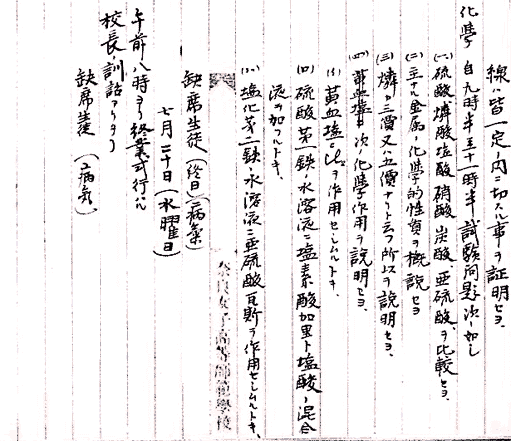 線ハ皆一定ノ円ニ切スル事ヲ証明セヨ、
化學 自九時半至十一時半 試驗問題次ノ如シ
(一) 硫酸、燐酸、塩酸、硝酸、炭酸、亜硫酸、ヲ比較セヨ、
(二) 主ナル金属ノ化學的性質ヲ概説セヨ
(三) 燐ガ三價又ハ五價ナリト云フ所以ヲ説明セヨ、
(四) 次ノ化學作用ヲ説明セヨ、
(イ) 黄血塩ニCl₂ヲ作用セシムルトキ、
(ロ) 硫酸第一鉄ノ水溶液ニ塩素酸加里ト塩酸ノ混合
液ヲ加フルトキ、
(ハ) 塩化第二鉄ノ水溶液ニ亜硫酸瓦斯ヲ作用セシムルトキ、
奈良女子高等師範學校
缺席生徒(終日)(病氣)
七月二十日(水曜日)
午前八時ヨリ終業式行ハル
校長ノ訓話アリタリ
缺席生徒(病気)